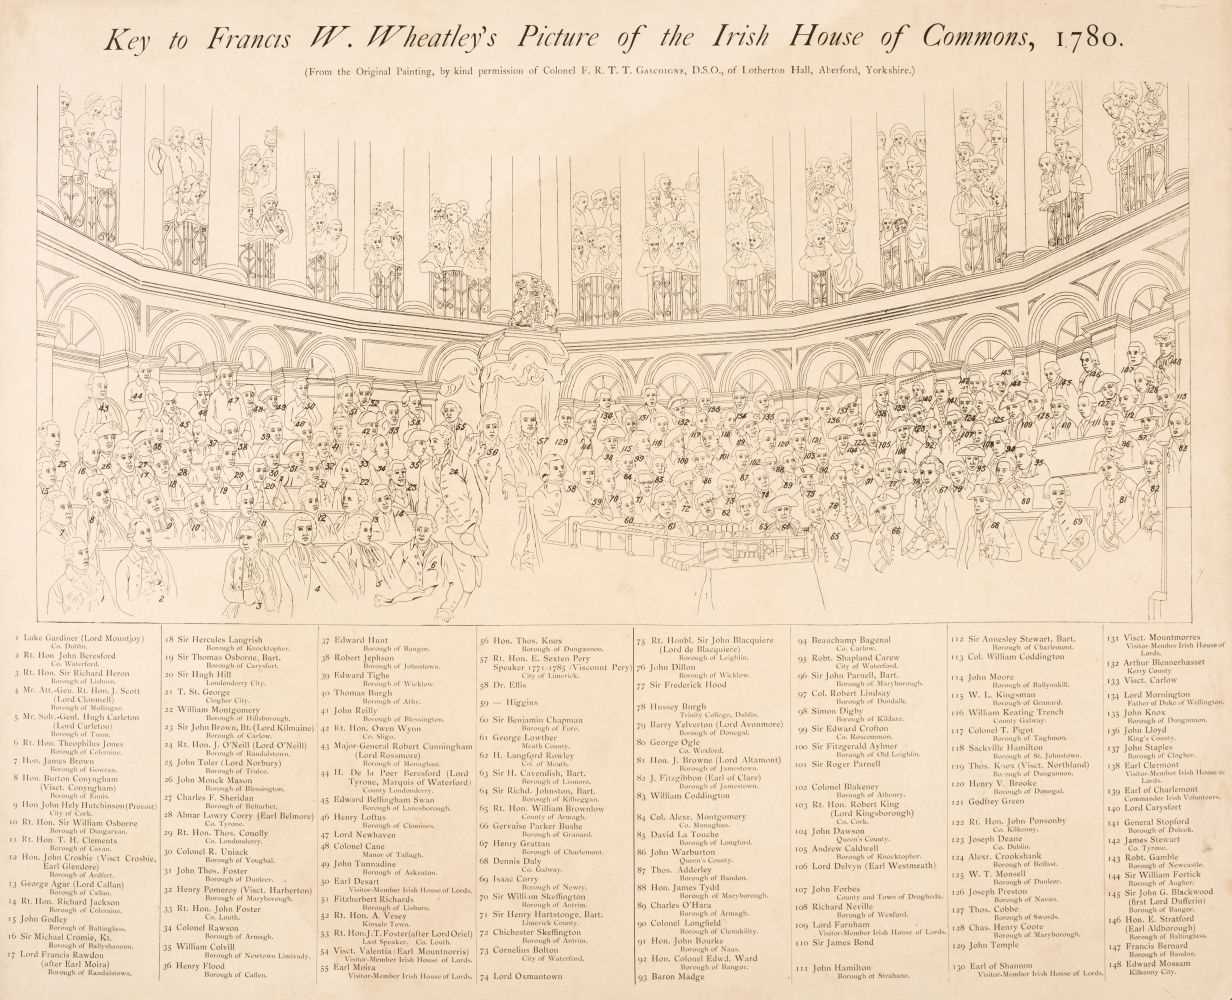 Key to Francis W. Wheatley's Picture of the Irish House of Commons, 1780.
(From the Original Painting, by kind permission of Colonel F. R. T. T. GASCOIGNE, D.S.O., of Lotherton Hall, Aberford, Yorkshire.)
1 Luke Gardiner (Lord Mountjoy)
Co. Dublin.
2 Rt. Hon John Beresford
Co. Waterford.
3 Rt. Hon. Sir Richard Heron
Borough of Lisburn.
4 Mr. Att.-Gen. Rt. Hon. J. Scott
(Lord Clonmell)
Borough of Mullingar.
5 Mr. Solr.-Genl. Hugh Carleton
(Lord Carleton)
Borough of Tuam.
6 Rt. Hon. Theophilus Jones
Borough of Coleraine.
7 Hon. James Brown
Borough of Gowran.
8 Hon. Burton Conyngham
(Visct. Conyngham)
Borough of Ennis.
9 Hon John Hely Hutchinson (Provost)
City of Cork.
10 Rt. Hon Sir William Osborne
Borough of Dungarvan.
11 Rt. Hon T. H. Clements
Borough of Cavan.
12 Hon. John Crosbie (Visct Crosbie,
Earl Glendore)
Borough of Ardfert.
13 George Agar (Lord Callan)
Borough of Callan.
14 Rt. Hon. Richard Jackson
Borough of Coleraine.
15 John Godley
Borough of Baltinglass.
16 Sir Michael Cromie, Kt.
Borough of Ballyshannon.
17 Lord Francis Rawdon
(after Earl Moira)
Borough of Randalstown.
18 Sir Hercules Langrish
Borough of Knocktopher.
19 Sir Thomas Osborne, Bart.
Borough of Carysfort.
20 Sir Hugh Hill
Londonderry City.
21 T. St. George
Clogher City.
22 William Montgomery
Borough of Hillsborough.
23 Sir John Brown, Bt. (Lord Kilmaine)
Borough of Carlow.
24 Rt. Hon. J. O'Neill (Lord O'Neill)
Borough of Randalstown.
25 John Toler (Lord Norbury)
Borough of Tralee.
26 John Monck Mason
Borough of Blessington.
27 Charles F. Sheridan
Borough of Belturbet.
28 Almar Lowry Corry (Earl Belmore)
Co. Tyrone.
29 Rt. Hon. Thos. Conolly
Co. Londonderry.
30 Colonel R. Uniack
Borough of Youghal.
31 John Thos. Foster
Borough of Dunleer.
32 Henry Pomeroy (Visct. Harberton)
Borough of Maryborough.
33 Rt. Hon. John Foster
Co. Louth.
34 Colonel Rawson
Borough of Armagh.
35 William Colvill
Borough of Newtown Limivady.
36 Henry Flood
Borough of Callen.
37 Edward Hunt
Borough of Bangor.
38 Robert Jephson
Borough of Johnstown.
39 Edward Tighe
Borough of Wicklow.
40 Thomas Burgh
Borough of Athy.
41 John Reilly
Borough of Blessington.
42 Rt. Hon. Owen Wynn
Co. Sligo.
43 Major-General Robert Cunningham
(Lord Rossmore)
Borough of Monaghan.
44 H. De la Poer Beresford (Lord
Tyrone, Marquis of Waterford)
County Londonderry.
45 Edward Bellingham Swan
Borough of Lanesborough.
46 Henry Loftus
Borough of Clomines.
47 Lord Newhaven
48 Colonel Cane
Manor of Tallagh.
49 John Tunnadine
Borough of Askeaton.
50 Earl Desart
Visitor-Member Irish House of Lords.
51 Fitzherbert Richards
Borough of Lisburn.
52 Rt. Hon. A. Vesey
Kinsale Town.
53 Rt. Hon. J.T. Foster (after Lord Oriel)
Last Speaker. Co. Louth.
54 Visct. Valentia (Earl Mountnorris)
Visitor-Member Irish House of Lords.
55 Earl Moira
Visitor-Member Irish House of Lords.
56 Hon. Thos. Knox
Borough of Dungannon.
57 Rt. Hon. E. Sexten Pery
Speaker 1771-1785 (Viscount Pery)
City of Limerick.
58 Dr. Ellis
59 — Higgins
60 Sir Benjamin Chapman
Borough of Fore.
61 George Lowther
Meath County.
62 H. Langford Rowley
Co. of Meath.
63 Sir H. Cavendish, Bart.
Borough of Lismore.
64 Sir Richd. Johnston, Bart.
Borough of Kilbeggan.
65 Rt. Hon. William Brownlow
County of Armagh.
66 Gervaise Parker Bushe
Borough of Granard.
67 Henry Grattan
Borough of Charlemont.
68 Dennis Daly
Co. Galway.
69 Isaac Corry
Borough of Newry.
70 Sir William Skeffington
Borough of Antrim.
71 Sir Henry Hartstonge, Bart.
Limerick County.
72 Chichester Skeffington
Borough of Antrim.
73 Cornelius Bolton
City of Waterford.
74 Lord Oxmantown
75 Rt. Honbl. Sir John Blacquiere
(Lord de Blacquiere)
Borough of Leighlin.
76 John Dillon
Borough of Wicklow.
77 Sir Frederick Hood
78 Hussey Burgh
Trinity College, Dublin.
79 Barry Yelverton (Lord Avonmore)
Borough of Donegal.
80 George Ogle
Co. Wexford.
81 Hon. J. Browne (Lord Altamont)
Borough of Jamestown.
82 J. Fitzgibbon (Earl of Clare)
Borough of Jamestown.
83 William Coddington
84 Col. Alexr. Montgomery
Co. Monaghan.
85 David La Touche
Borough of Longford.
86 John Warburton
Queen's County.
87 Thos. Adderley
Borough of Bandon.
88 Hon. James Tydd
Borough of Maryborough.
89 Charles O'Hara
Borough of Armagh.
90 Colonel Longfield
Borough of Clonakilty.
91 Hon. John Bourke
Borough of Naas.
92 Hon. Colonel Edwd. Ward
Borough of Bangor.
93 Baron Madge
94 Beauchamp Bagenal
Co. Carlow.
95 Robt. Shapland Carew
City of Waterford.
96 Sir John Parnell, Bart.
Borough of Maryborough.
97 Col. Robert Lindsay
Borough of Dundalk.
98 Simon Digby
Borough of Kildare.
99 Sir Edward Crofton
Co. Roscommon.
100 Sir Fitzgerald Aylmer
Borough of Old Leighlin.
101 Sir Roger Parnell
102 Colonel Blakeney
Borough of Athenry.
103 Rt. Hon. Robert King
(Lord Kingsborough)
Co. Cork.
104 John Dawson
Queen's County.
105 Andrew Caldwell
Borough of Knocktopher.
106 Lord Delvyn (Earl Westmeath)
107 John Forbes
County and Town of Drogheda.
108 Richard Neville
Borough of Wexford.
109 Lord Farnham
Visitor-Member Irish House of Lords.
110 Sir James Bond
111 John Hamilton
Borough of Strabane.
112 Sir Annesley Stewart, Bart.
Borough of Charlemont.
113 Col. William Coddington
114 John Moore
Borough of Ballynakill.
115 W. L. Kingsman
Borough of Granard.
116 William Keating Trench
County Galway.
117 Colonel T. Pigot
Borough of Taghmon.
118 Sackville Hamilton
Borough of St. Johnstown.
119 Thos. Knox (Visct. Northland)
Borough of Dungannon.
120 Henry V. Brooke
Borough of Donegal.
121 Godfrey Green
122 Rt. Hon. John Ponsonby
Co. Kilkenny.
123 Joseph Deane
Co. Dublin.
124 Alexr. Crookshank
Borough of Belfast.
125 W. T. Monsell
Borough of Dunleer.
126 Joseph Preston
Borough of Navan.
127 Thos. Cobbe
Borough of Swords.
128 Chas. Henry Coote
Borough of Maryborough.
129 John Temple
130 Earl of Shannon
Visitor-Member Irish House of Lords.
131 Visct. Mountmorres
Visitor-Member Irish House of
Lords.
132 Arthur Blennerhasset
Kerry County
133 Visct. Carlow
134 Lord Mornington
Father of Duke of Wellington.
135 John Knox
Borough of Dungannon.
136 John Lloyd
King's County.
137 John Staples
Borough of Clogher.
138 Earl Clermont
Visitor-Member Irish House of
Lords.
139 Earl of Charlemont
Commander Irish Volunteers.
140 Lord Carysfort
141 General Stopford
Borough of Duleek.
142 James Stewart
Co. Tyrone.
143 Robt. Gamble
Borough of Newcastle.
144 Sir William Fortick
Borough of Augher.
145 Sir John G. Blackwood
(first Lord Dufferin)
Borough of Bangor.
146 Hon. E. Stratford
(Earl Aldborough)
Borough of Baltinglass.
147 Francis Bernard
Borough of Bandon.
148 Edward Mossam
Kilkenny City.